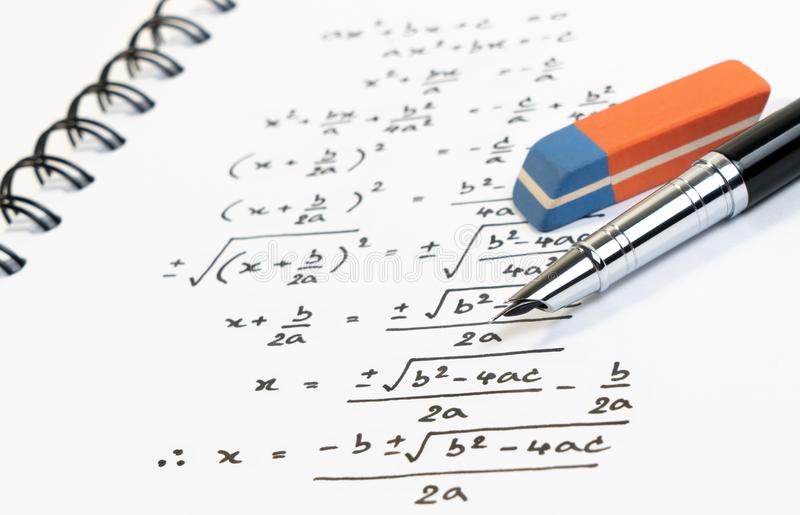 ax² + bx + c = 0
ax² + bx = -c
x² + bx/a = -c/a
x² + bx/a + b²/4a² = -c/a + b²/4a²
(x + b/2a)² = -c/a
(x + b/2a)² = b² - / 4a
±√(x + b/2a)² = ±√(b² - 4ac / 4a²)
x + b/2a = ±√b² - / 2a
x = ±√b² - 4ac / 2a - b/2a
∴ x = -b ± √b² - 4ac / 2a
dreamstime